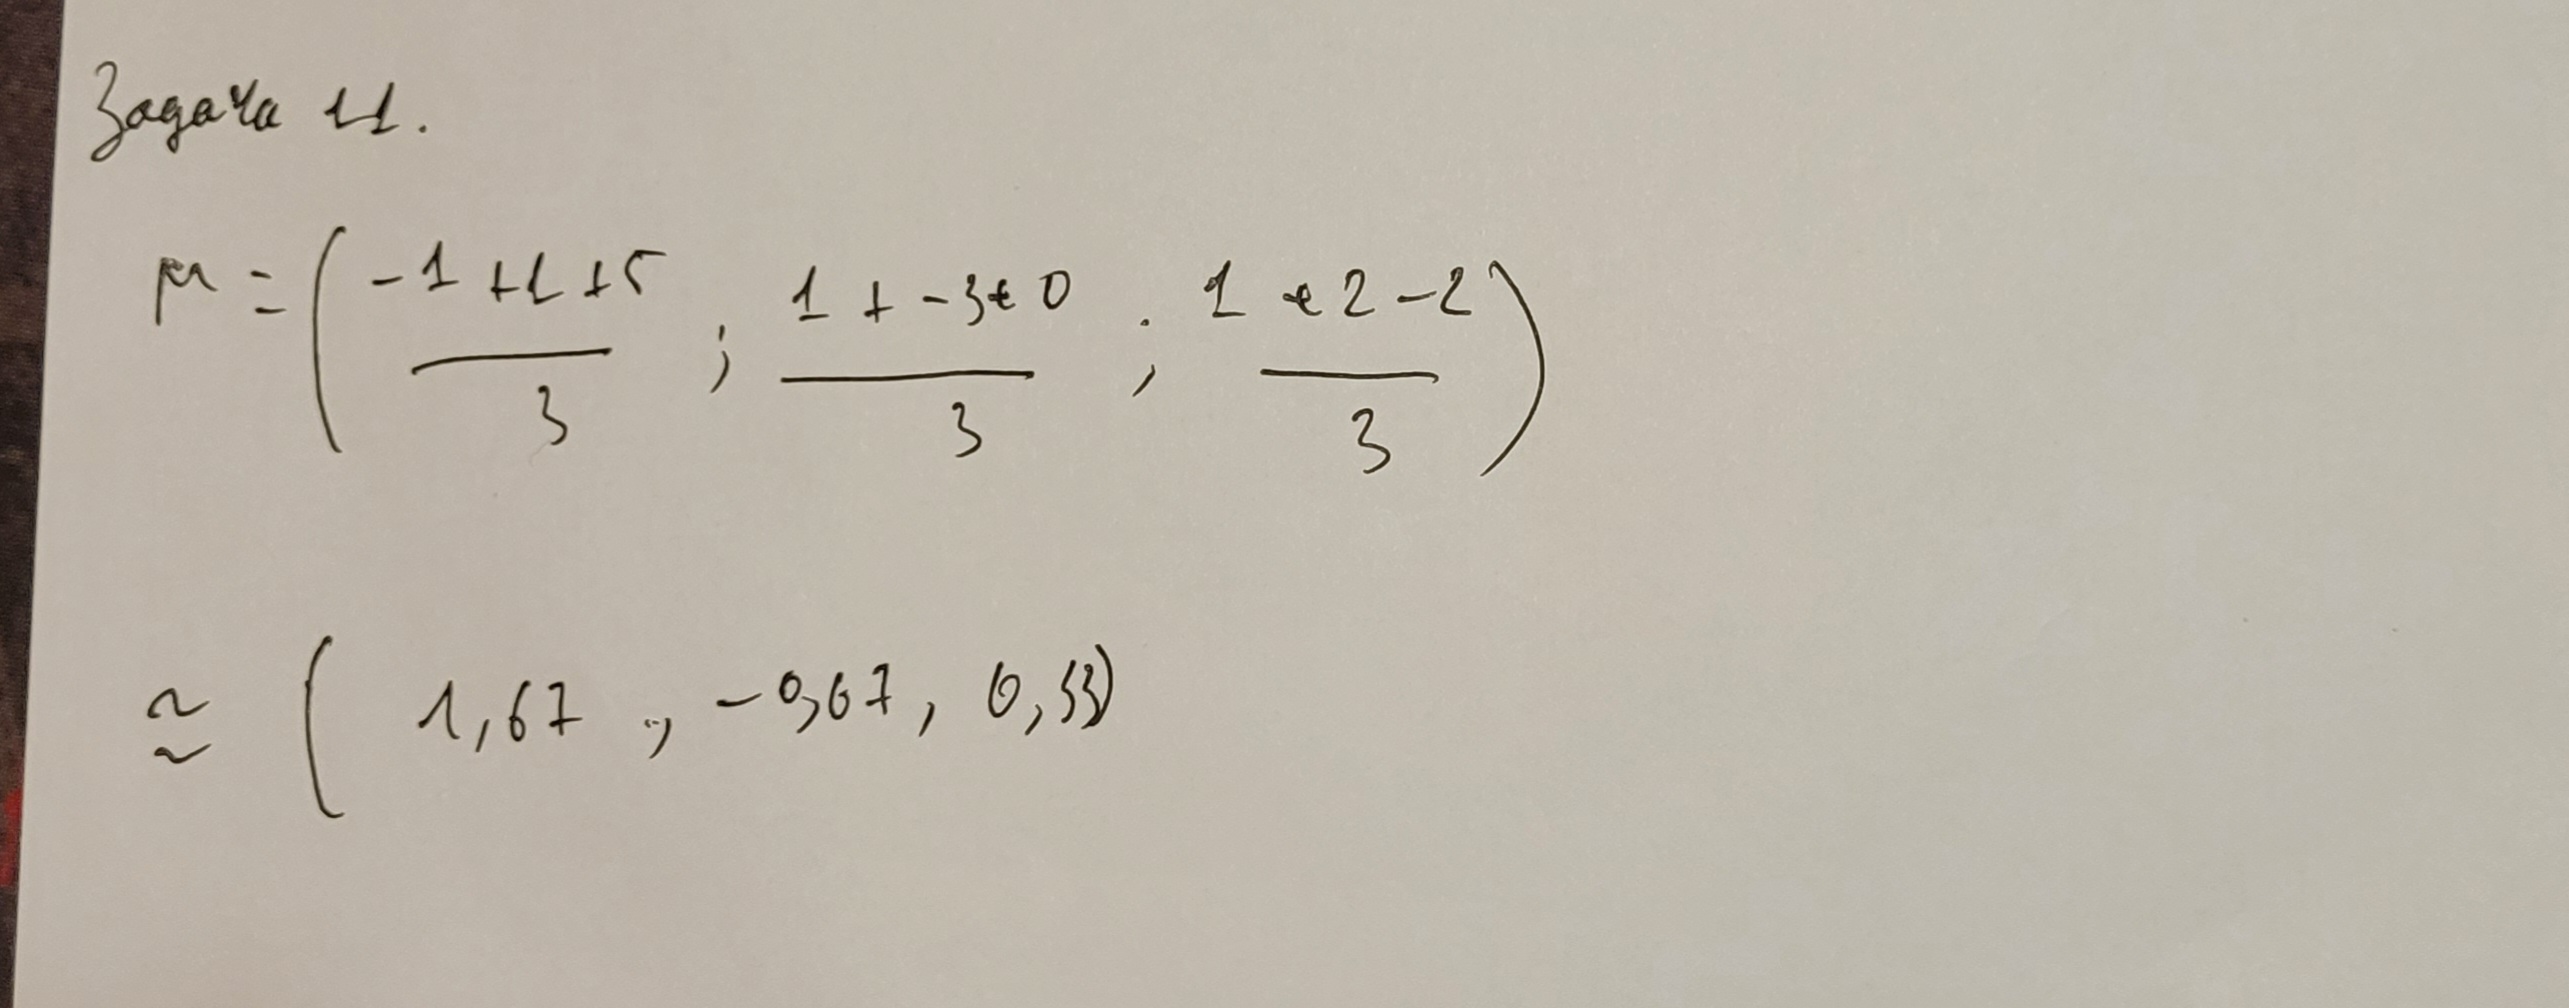 Задача 11.
μ = ( (-1 +1 +5)/3 ; (1 + -3+0)/3 ; (1 +2 -2)/3 )
≈ ( 1,67 , -0,67, 0,33)